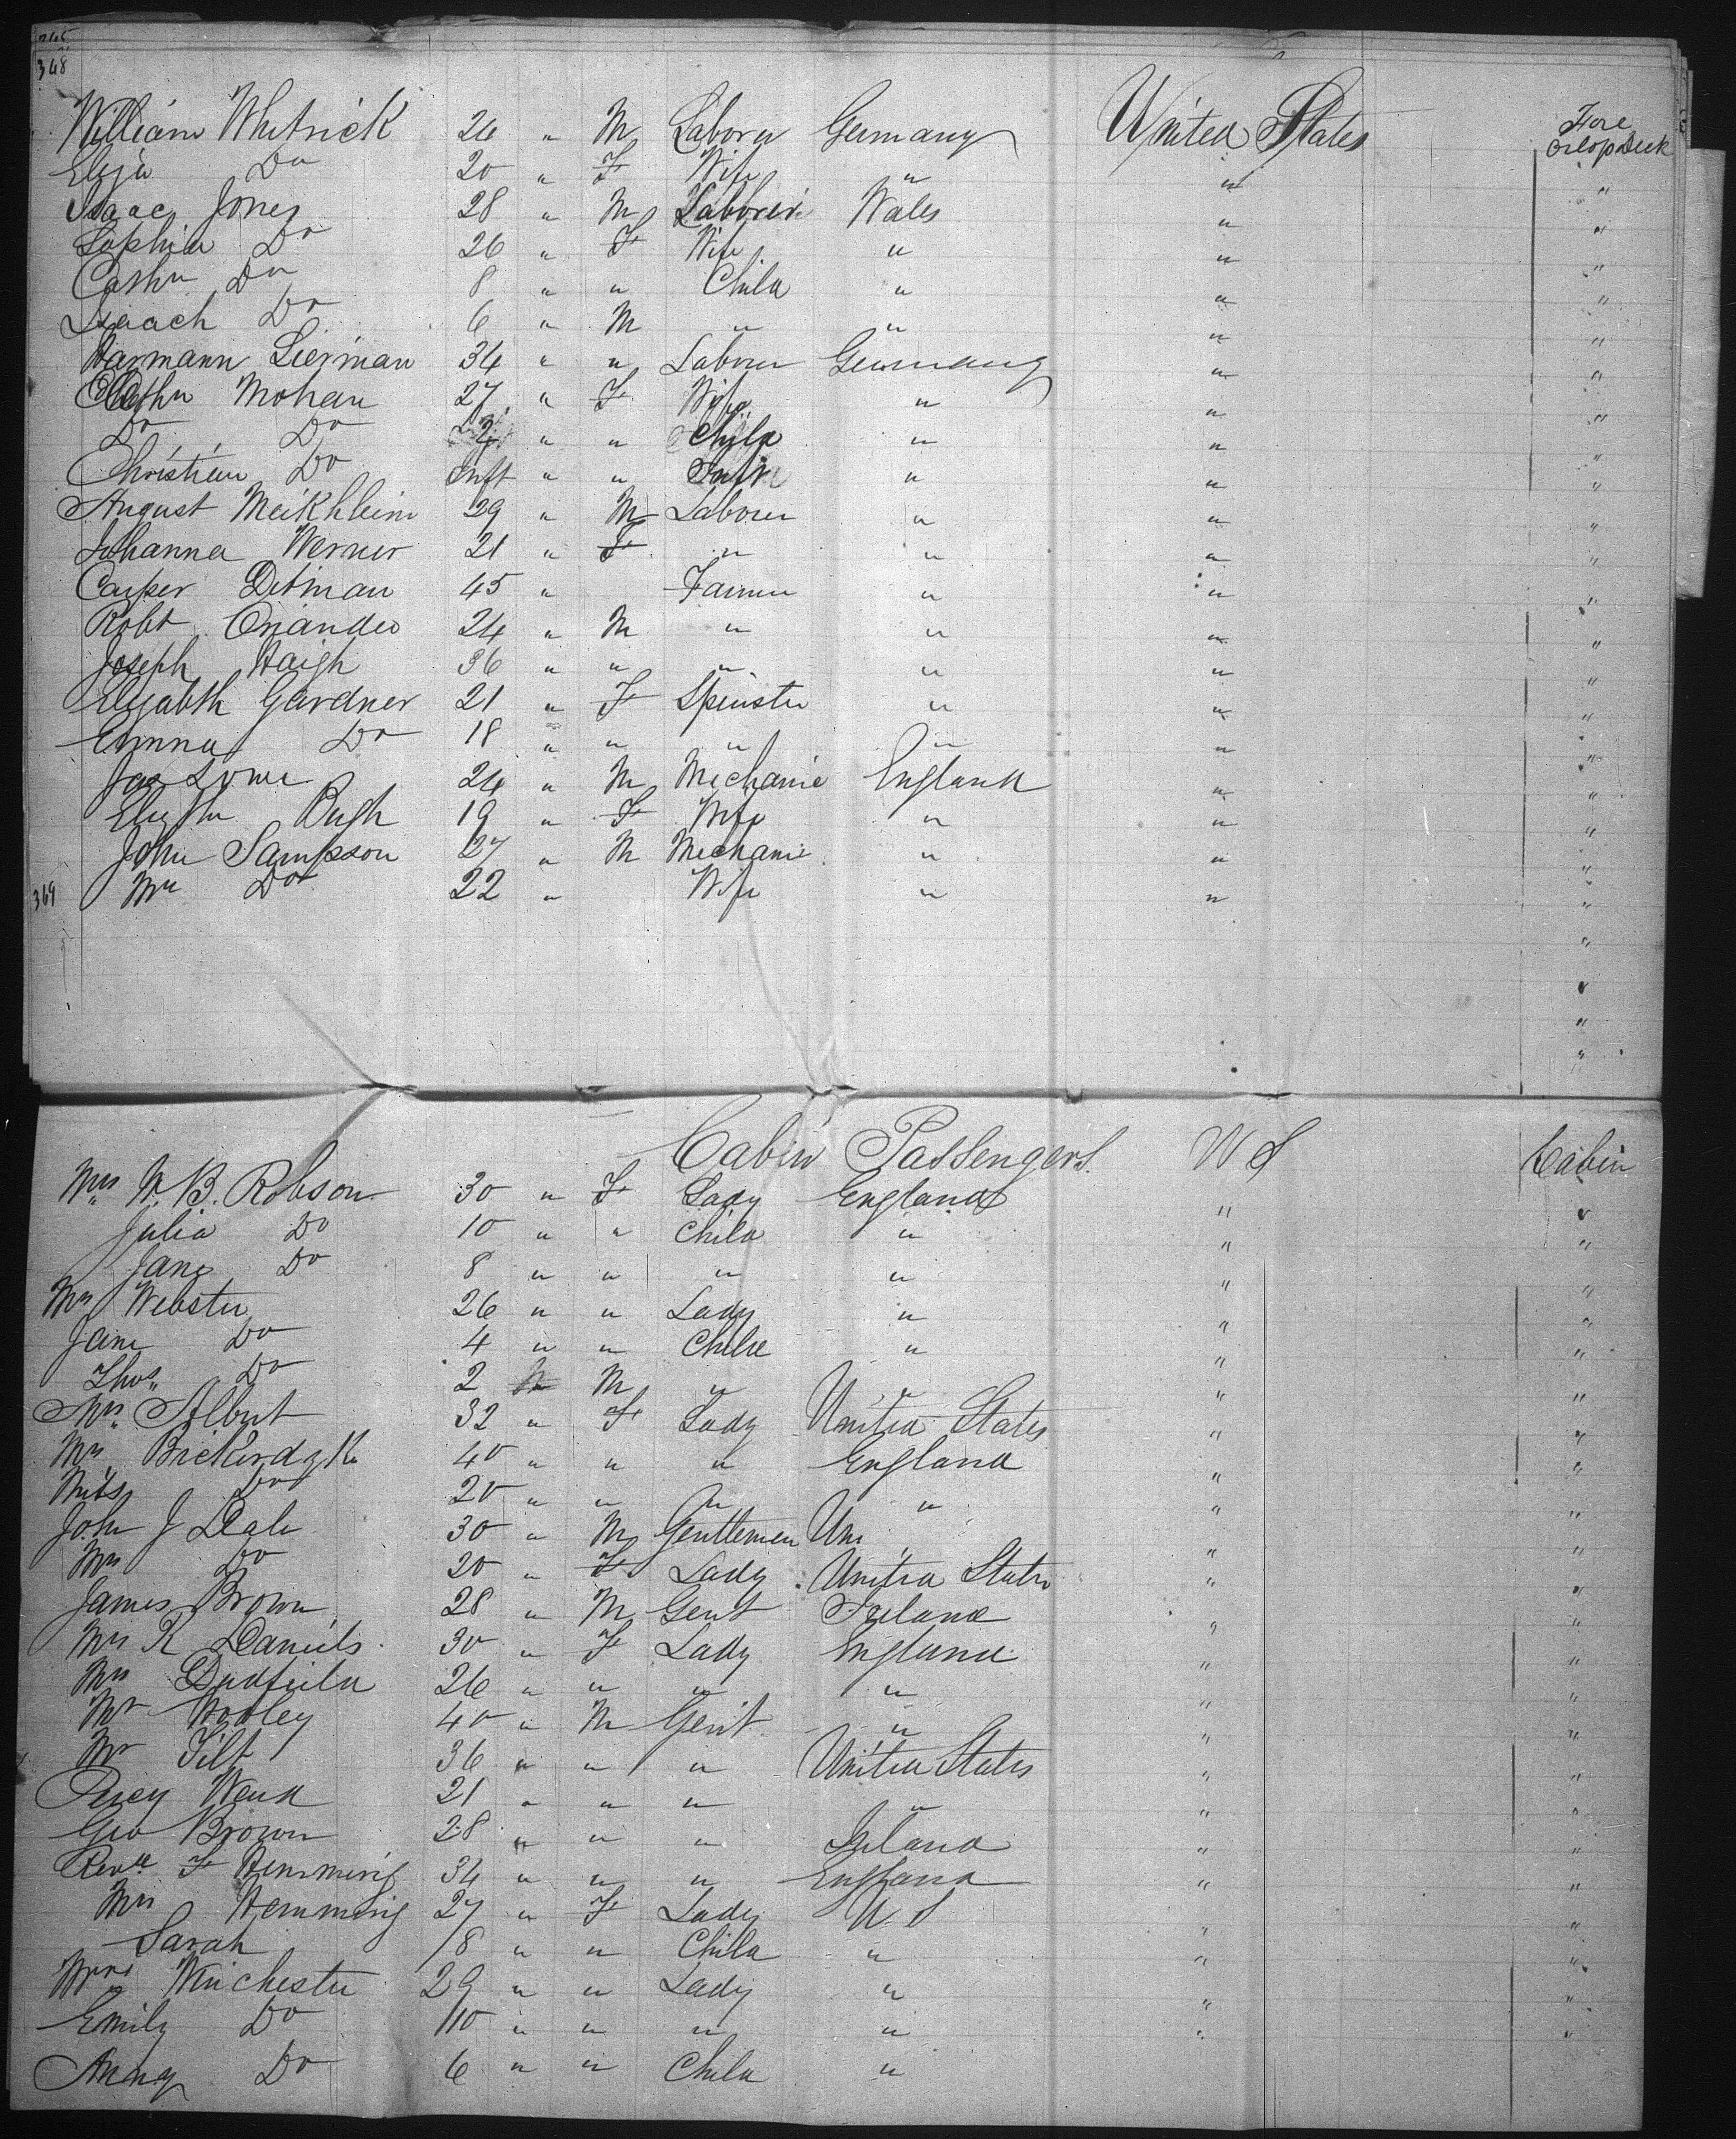 348
William Whitrick 26 " M Laborer Germany United States Fore Orlop Deck
Eliza Do 20 " F Wife " " "
Isaac Jones 28 " M Laborer Wales " "
Sophia Do 26 " F Wife " " "
Do 8 " " Child " " "
Isaach Do 6 " M " " " "
Harmann Lierman 34 " " Labourer Germany " "
Mohan 27 " F Wife " " "
Do Do " " Child " " "
Christian Do Inft " " Inft " " "
August Meikhleim 29 " M Laborer " " "
Johanna Werner 21 " F " " " "
Casper Ditman 45 " Farmer " " "
Robt 24 " M " " " "
Joseph Haigh 36 " " " " " "
Elizabth Gardner 21 " F Spinster " " "
Emma Do 18 " " " " " "
Jas Lowe 24 " M Mechanic England " "
Pugh 19 " F Wife " " "
John Sampson 27 " M Mechanic " " "
369 Mrs Do 22 " Wife " " "
Cabin Passengers U S Cabin
Mrs W. B. Robson 30 " F Lady England " "
Julia Do 10 " " Child " " "
Jane Do 8 " " " " " "
Mrs Webster 26 " " Lady " " "
Jane Do 4 " " Child " " "
Thos Do 2 M " " " "
Mrs Albert 32 " F Lady United States " "
Mrs 40 " " " England " "
Miss Do 20 " " " " " "
John J Dale 30 " M Gentlemen Uni " "
Mrs Do 20 " F Lady United States " "
James Brown 28 " M Gent Ireland " "
Mrs K Daniels 30 " F Lady England " "
Mrs Dudfield 26 " " " " " "
Mr Wooley 40 " M Gent " " "
Mr Tilt 36 " " " United States " "
Percy 21 " " " " " "
Geo Brown 28 " " " Ireland " "
Revd F Hemming 34 " " " England " "
Mrs Hemming 27 " F Lady U S " "
Sarah 8 " " Child " " "
Mrs Winchester 29 " " Lady " " "
Emily Do 10 " " " " " "
Anny Do 6 " " Child "